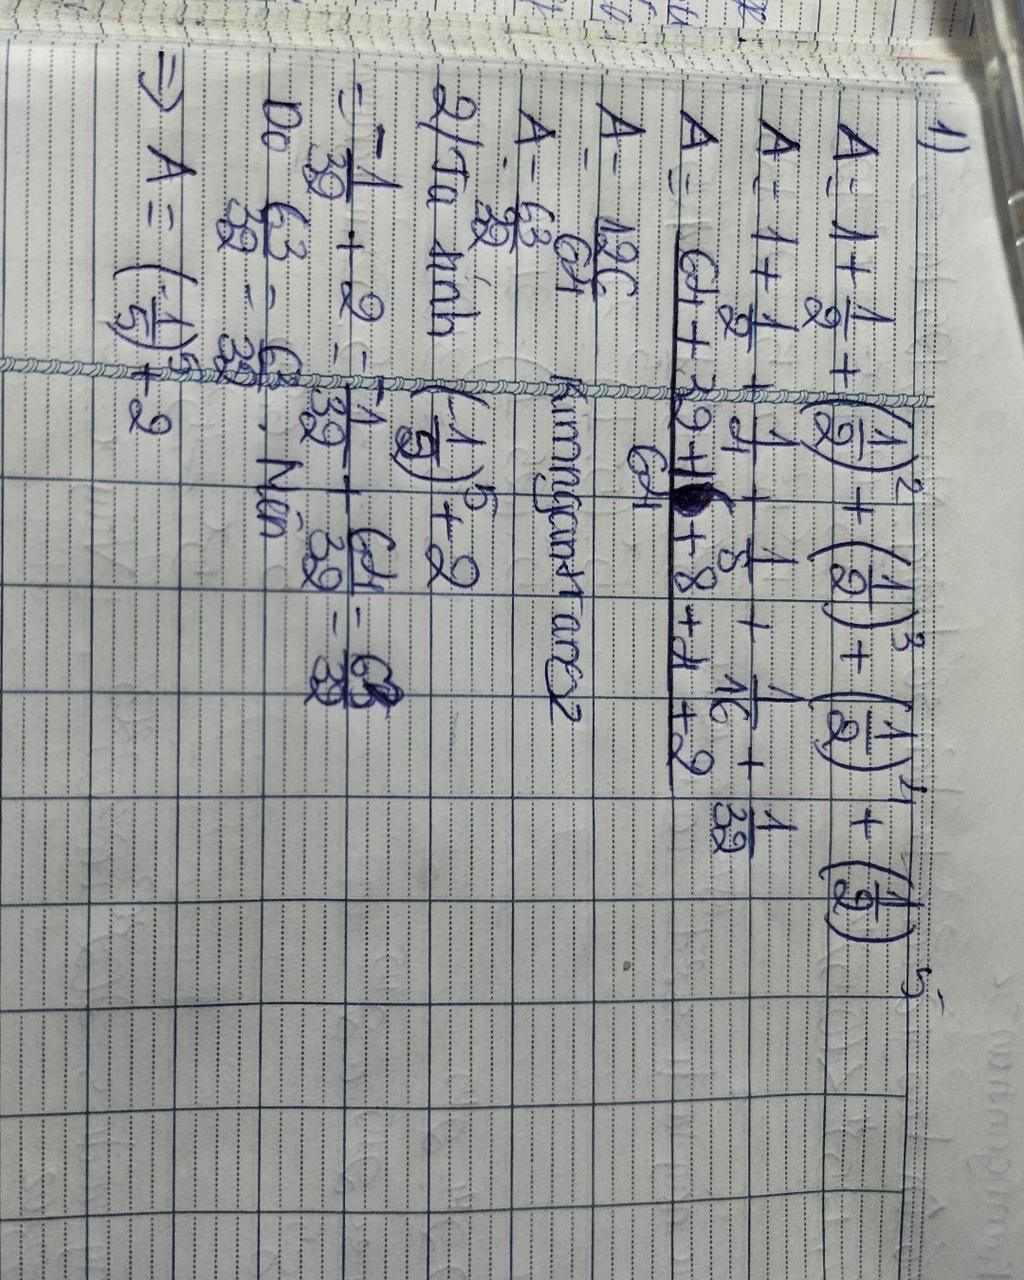 1)
A = 1 + 1/2 + (1/2)^2 + (1/2)^3 + (1/2)^4 + (1/2)^5
A = 1 + 1/2 + 1/4 + 1/8 + 1/16 + 1/32
A = (64 + 32 + 16 + 8 + 4 + 2)/64
A = 126/64
A = 63/32
2/ Ta tính (-1/5)^5 + 2
= -1/32 + 2 = -1/32 + 64/32 = 63/32
Do 63/32 = 63/32. Nên
=> A = (-1/5)^5 + 2